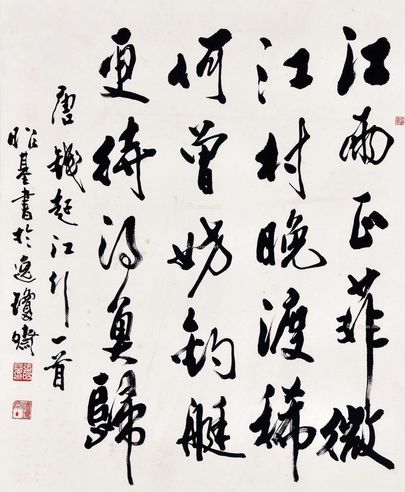 江雨正菲微
江村晚渡稀
何曾妨钓艇
更待得魚歸
唐錢起江行一首
昭基書於逸瓊齋